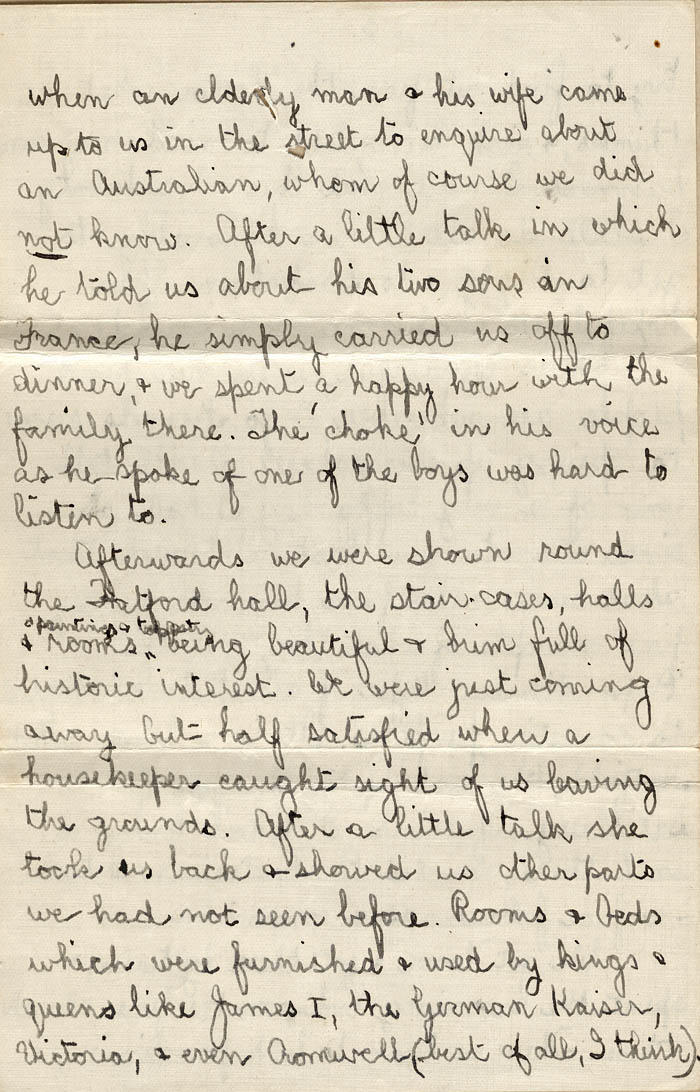 when an elderly man & his wife came
up to us in the street to enquire about
an Australian, whom of course we did
not know. After a little talk in which
he told us about his two sons in
France, he simply carried us off to
dinner, & we spent a happy hour with the
family there. The 'choke' in his voice
as he spoke of one of the boys was hard to
listen to.
Afterwards we were shown round
the Hatford hall, the stair-cases, halls
paintings & tapestry
& rooms being beautiful & brim full of
historic interest. We were just coming
away but half satisfied when a
housekeeper caught sight of us leaving
the grounds. After a little talk she
took us back & showed us other parts
we had not seen before. Rooms & beds
which were furnished & used by kings &
queens like James I, the German Kaiser,
Victoria, & even Cromwell (best of all, I think).